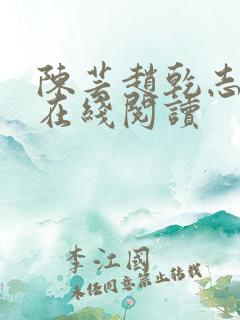 陳芸趙乾志
在綫閱讀
李江國
未經同意禁止轉載